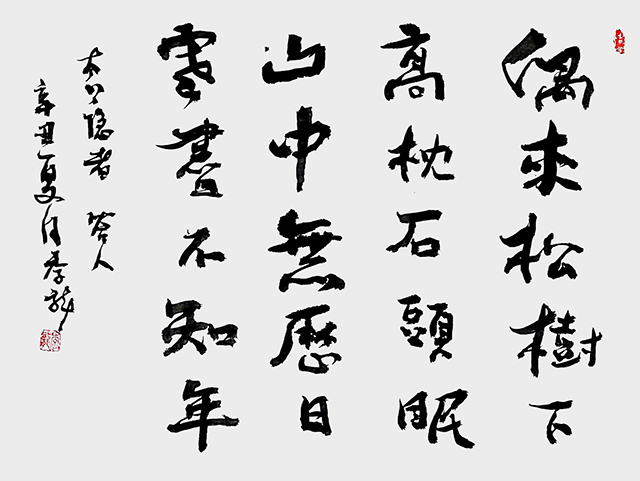 偶來松樹下
高枕石頭眠
山中無歷日
寒盡不知年
太上隱者 答人
辛丑夏月李龍